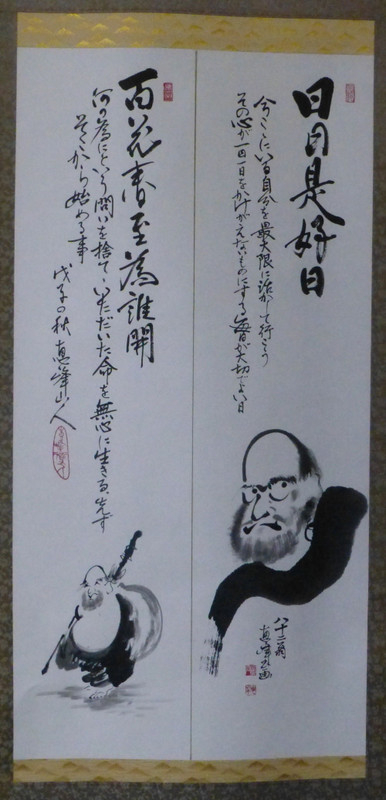 日日是好日
今ここにいる自分を最大限に活かして行こう
その心が一日一日をかけがえないものにする毎日が大切でよい日
八十二翁
直峰文画
百花春至為誰開
何の為にという問いを捨て、いただいた命を無心に生きる、先ず
そこから始める事
戊子の秋 直峰山人